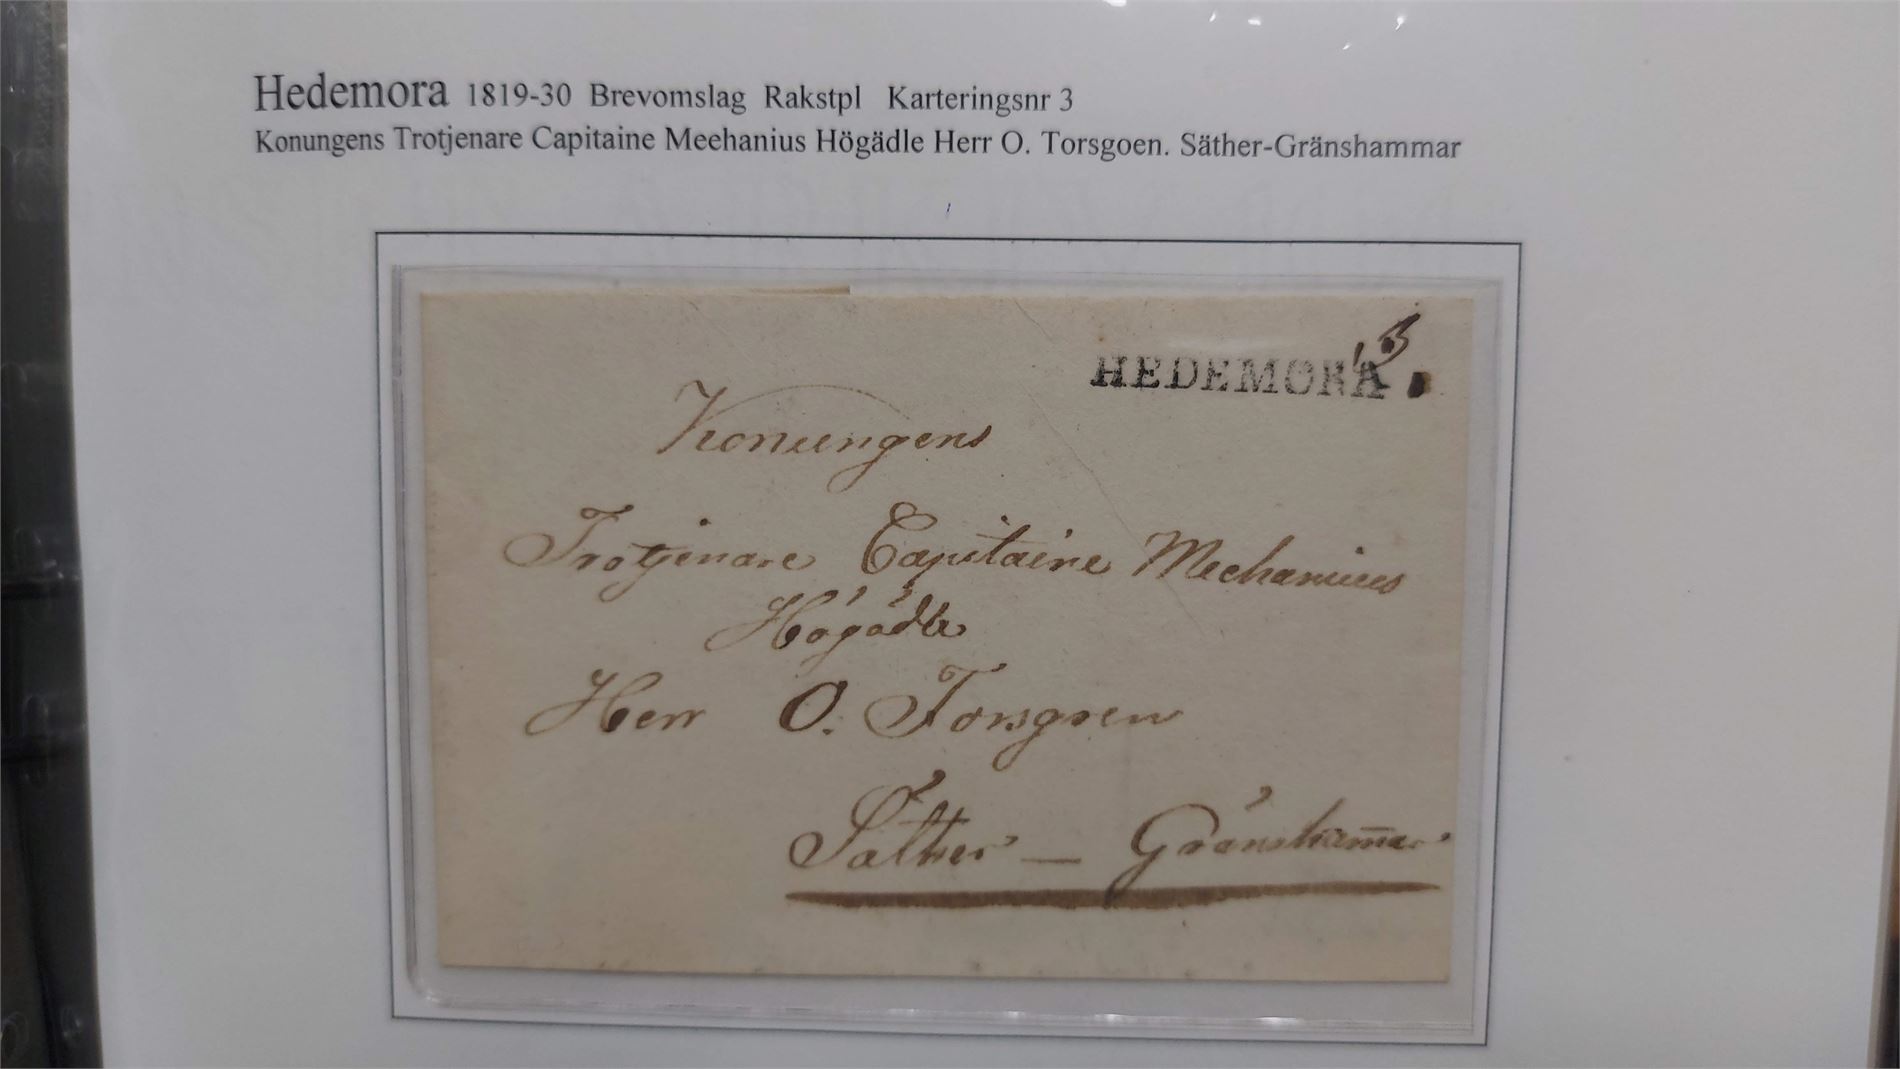 Hedemora 1819-30 Brevomslag Rakstpl Karteringsnr 3
Konungens Trotjenare Capitaine Meehanius Högädle Herr O. Torsgoen. Säther-Gränshammar
3
HEDEMORA
Konungens
Trotjenare Capitaine Mechanicus
Högädle
Herr O. Torsgren
Säther — Gränsham̅ar